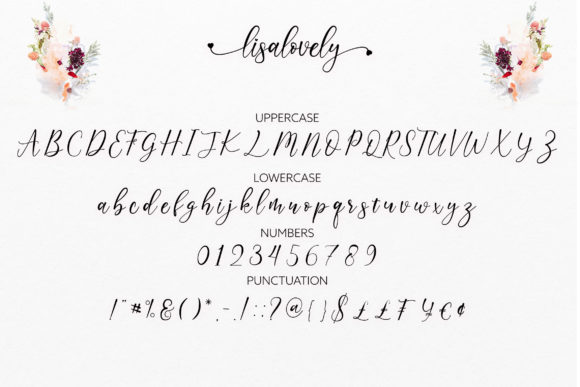 lisalovely
UPPERCASE
A B C D E F G H I J K L M N O P Q R S T U V W X Y Z
LOWERCASE
a b c d e f g h i j k l m n o p q r s t u v w x y z
NUMBERS
0 1 2 3 4 5 6 7 8 9
PUNCTUATION
! " # % & ( ) * , - . / : ; ? @ { } $ £ £ ₣ ¥ € ¢